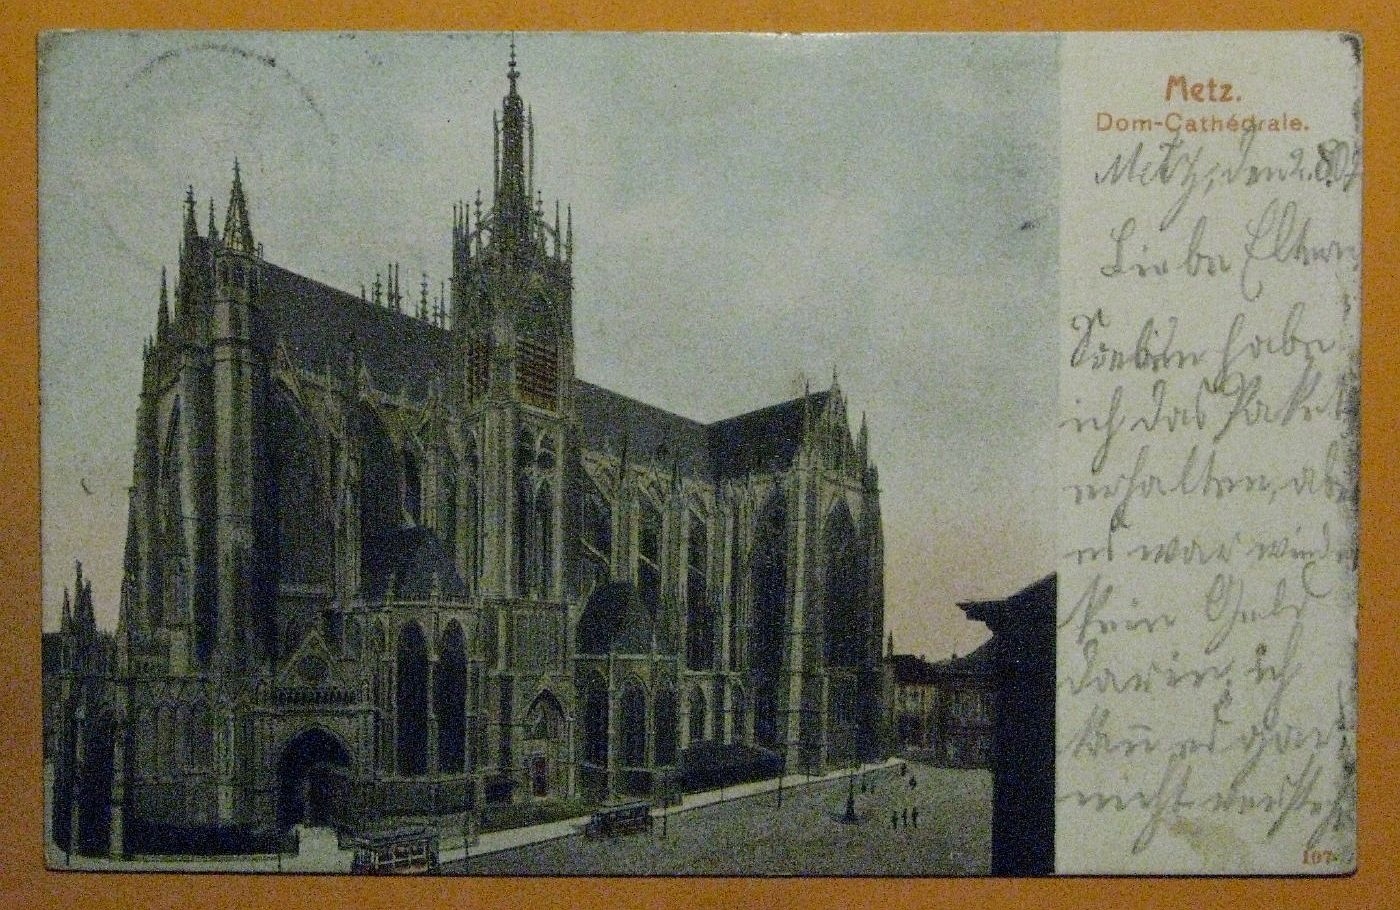 Metz.
Dom-Cathédrale.
Metz, den 2.8.07
Liebe Eltern
Soeben habe
ich das Paket
erhalten, aber
es war wieder
kein Geld
darin, ich
kan̄ es gar
nicht versteh
107